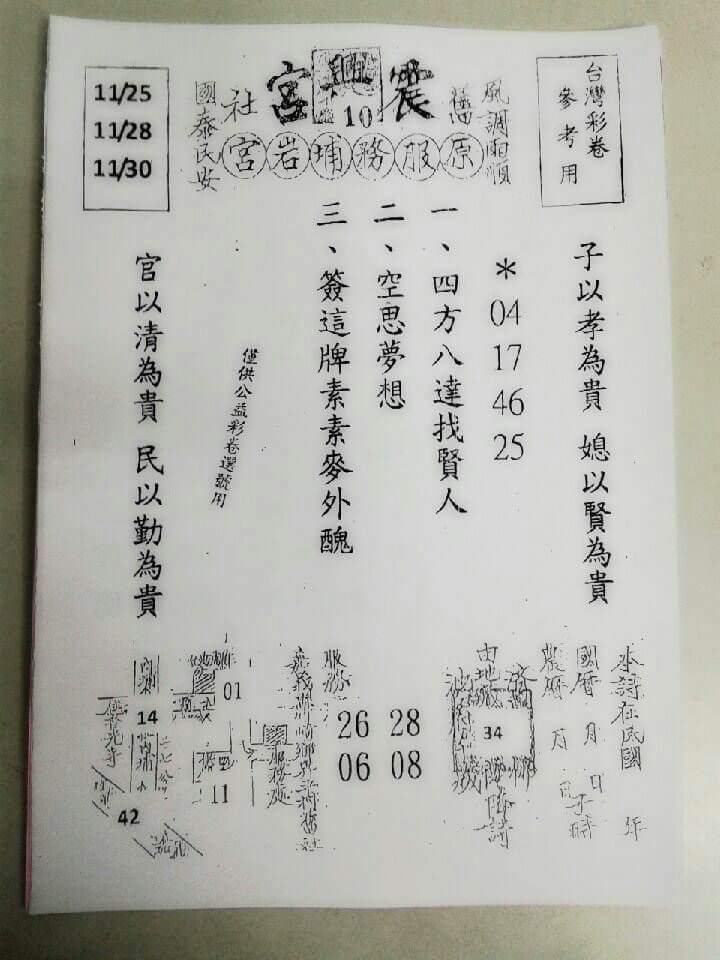 台灣彩卷
參考用
震興宮
10
社
舊
風調雨順
國泰民安
原服務埔岩宮
11/25
11/28
11/30
子以孝為貴 媳以賢為貴
*04 17 46 25
一、四方八達找賢人
二、空思夢想
三、簽這牌素素麥外醜
僅供公益彩卷選號用
官以清為貴 民以勤為貴
本詩在民國 年
國曆 月 日
農曆 月 日子時
34
服務
26 28
06 08
服務處
01
11
14
42